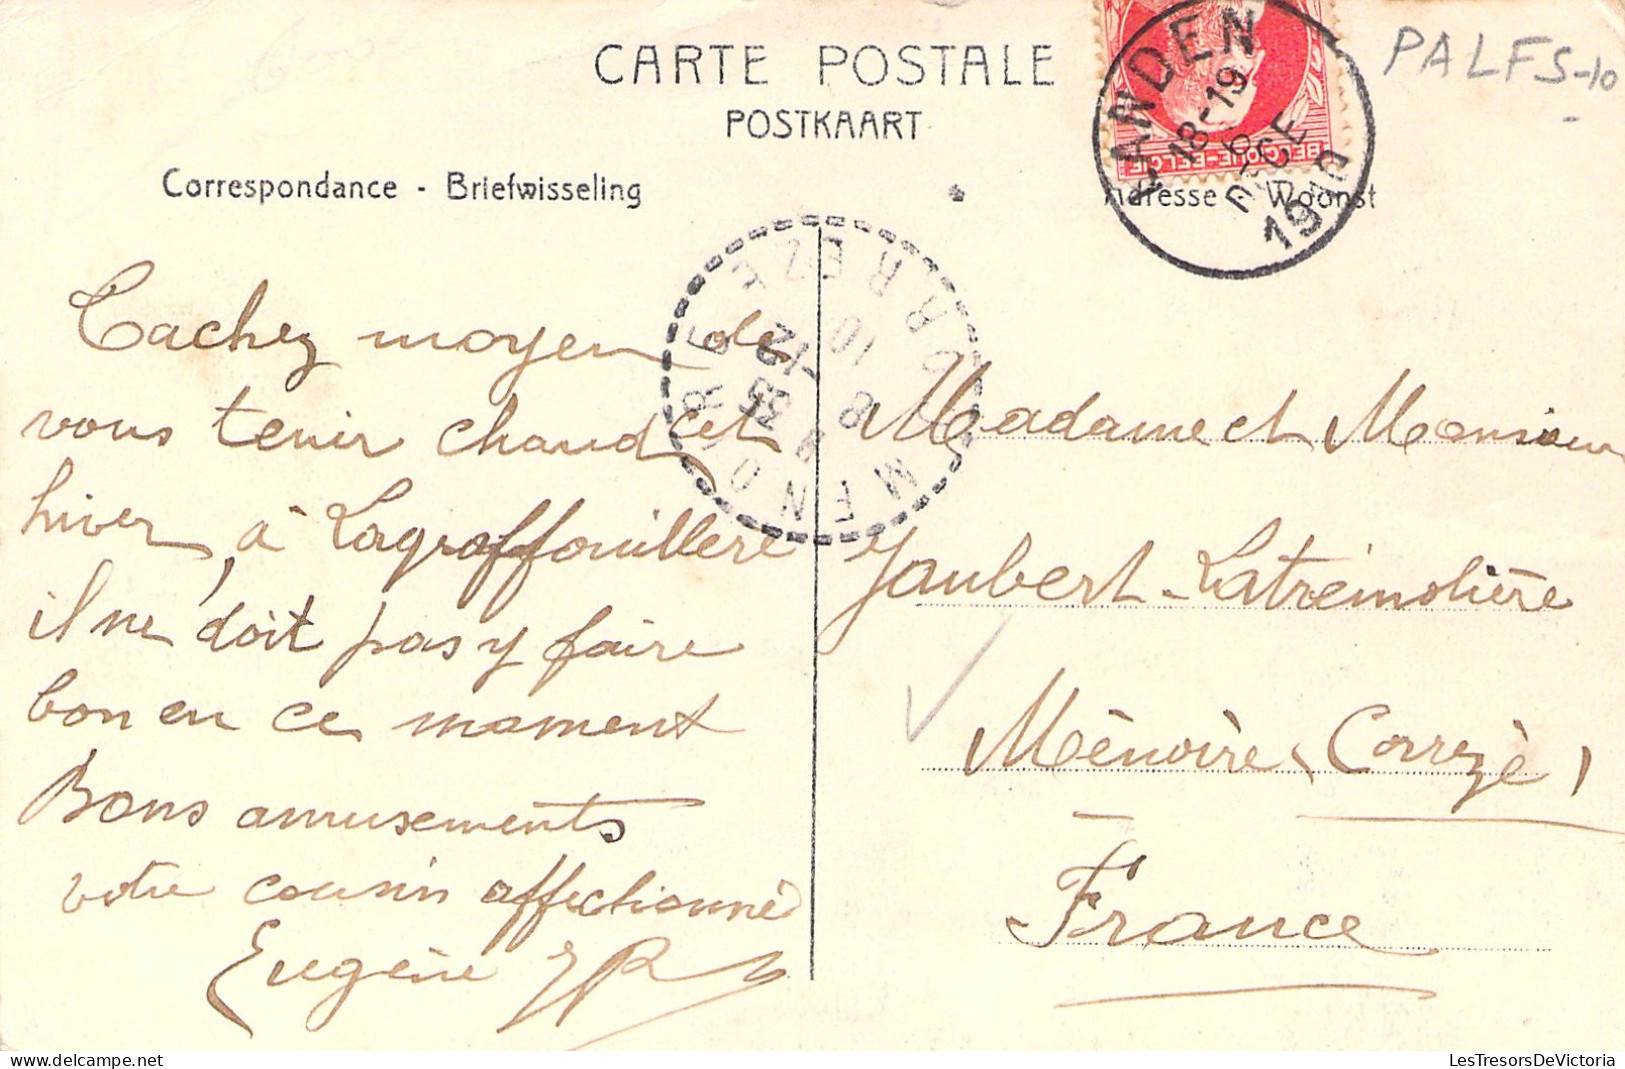 CARTE POSTALE
POSTKAART
PALFS-10
Correspondance - Briefwisseling
Adresse - Woonst
BELGIQUE-BELGIË
LANDEN
18-19
6
DECE
1910
MENOIRE
CORREZE
8 -12
10
Cachez moyen de
vous tenir chaud cet
hiver, à Lagraffouillère
il ne doit pas y faire
bon en ce moment
Bons amusements
votre cousin affectionné
Eugène
Madame et Monsieur
Jaubert-Latreimolière
Mènoire (Corrèze)
France
LesTresorsDeVictoria